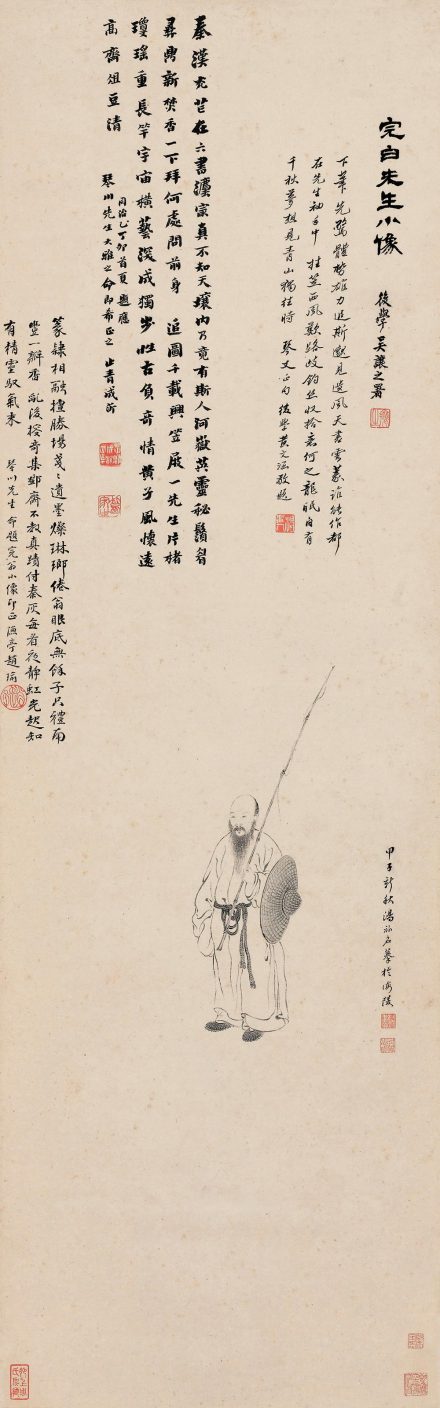 完白先生小像
後學吳讓之署
下筆先驚體勢雄力追斯邈見遺風天書雲篆誰能作都
在先生袖手中 拄笠西風歎路歧釣絲收拾意何之龍眠自有
千秋夢想見青山獨往時 琴
後學黃文涵敬題
秦漢尤芒在六書瀍宗真不知天壤內乃竟有斯人河嶽英靈秘鬚眉
彝鼎新焚香一下拜何處問前身 追圖千載興笠屐一先生片楮
瓊瑤重長竿宇宙橫藝深成獨步性古負奇情黃子風懷遠
高齋俎豆清
同治丁卯首夏題應
琴川先生大雅之命即希正之
篆隸相融擅勝場戔戔遺墨燦琳瑯倦翁眼底無餘子只禮南
豐一瓣香 亂後搜奇集鄴齋不教真蹟付秦灰每看夜靜虹光起知
有精靈馭氣來
琴川先生命題完翁小像即正漁亭趙瑜
甲子新秋湯祿名摹於海陵